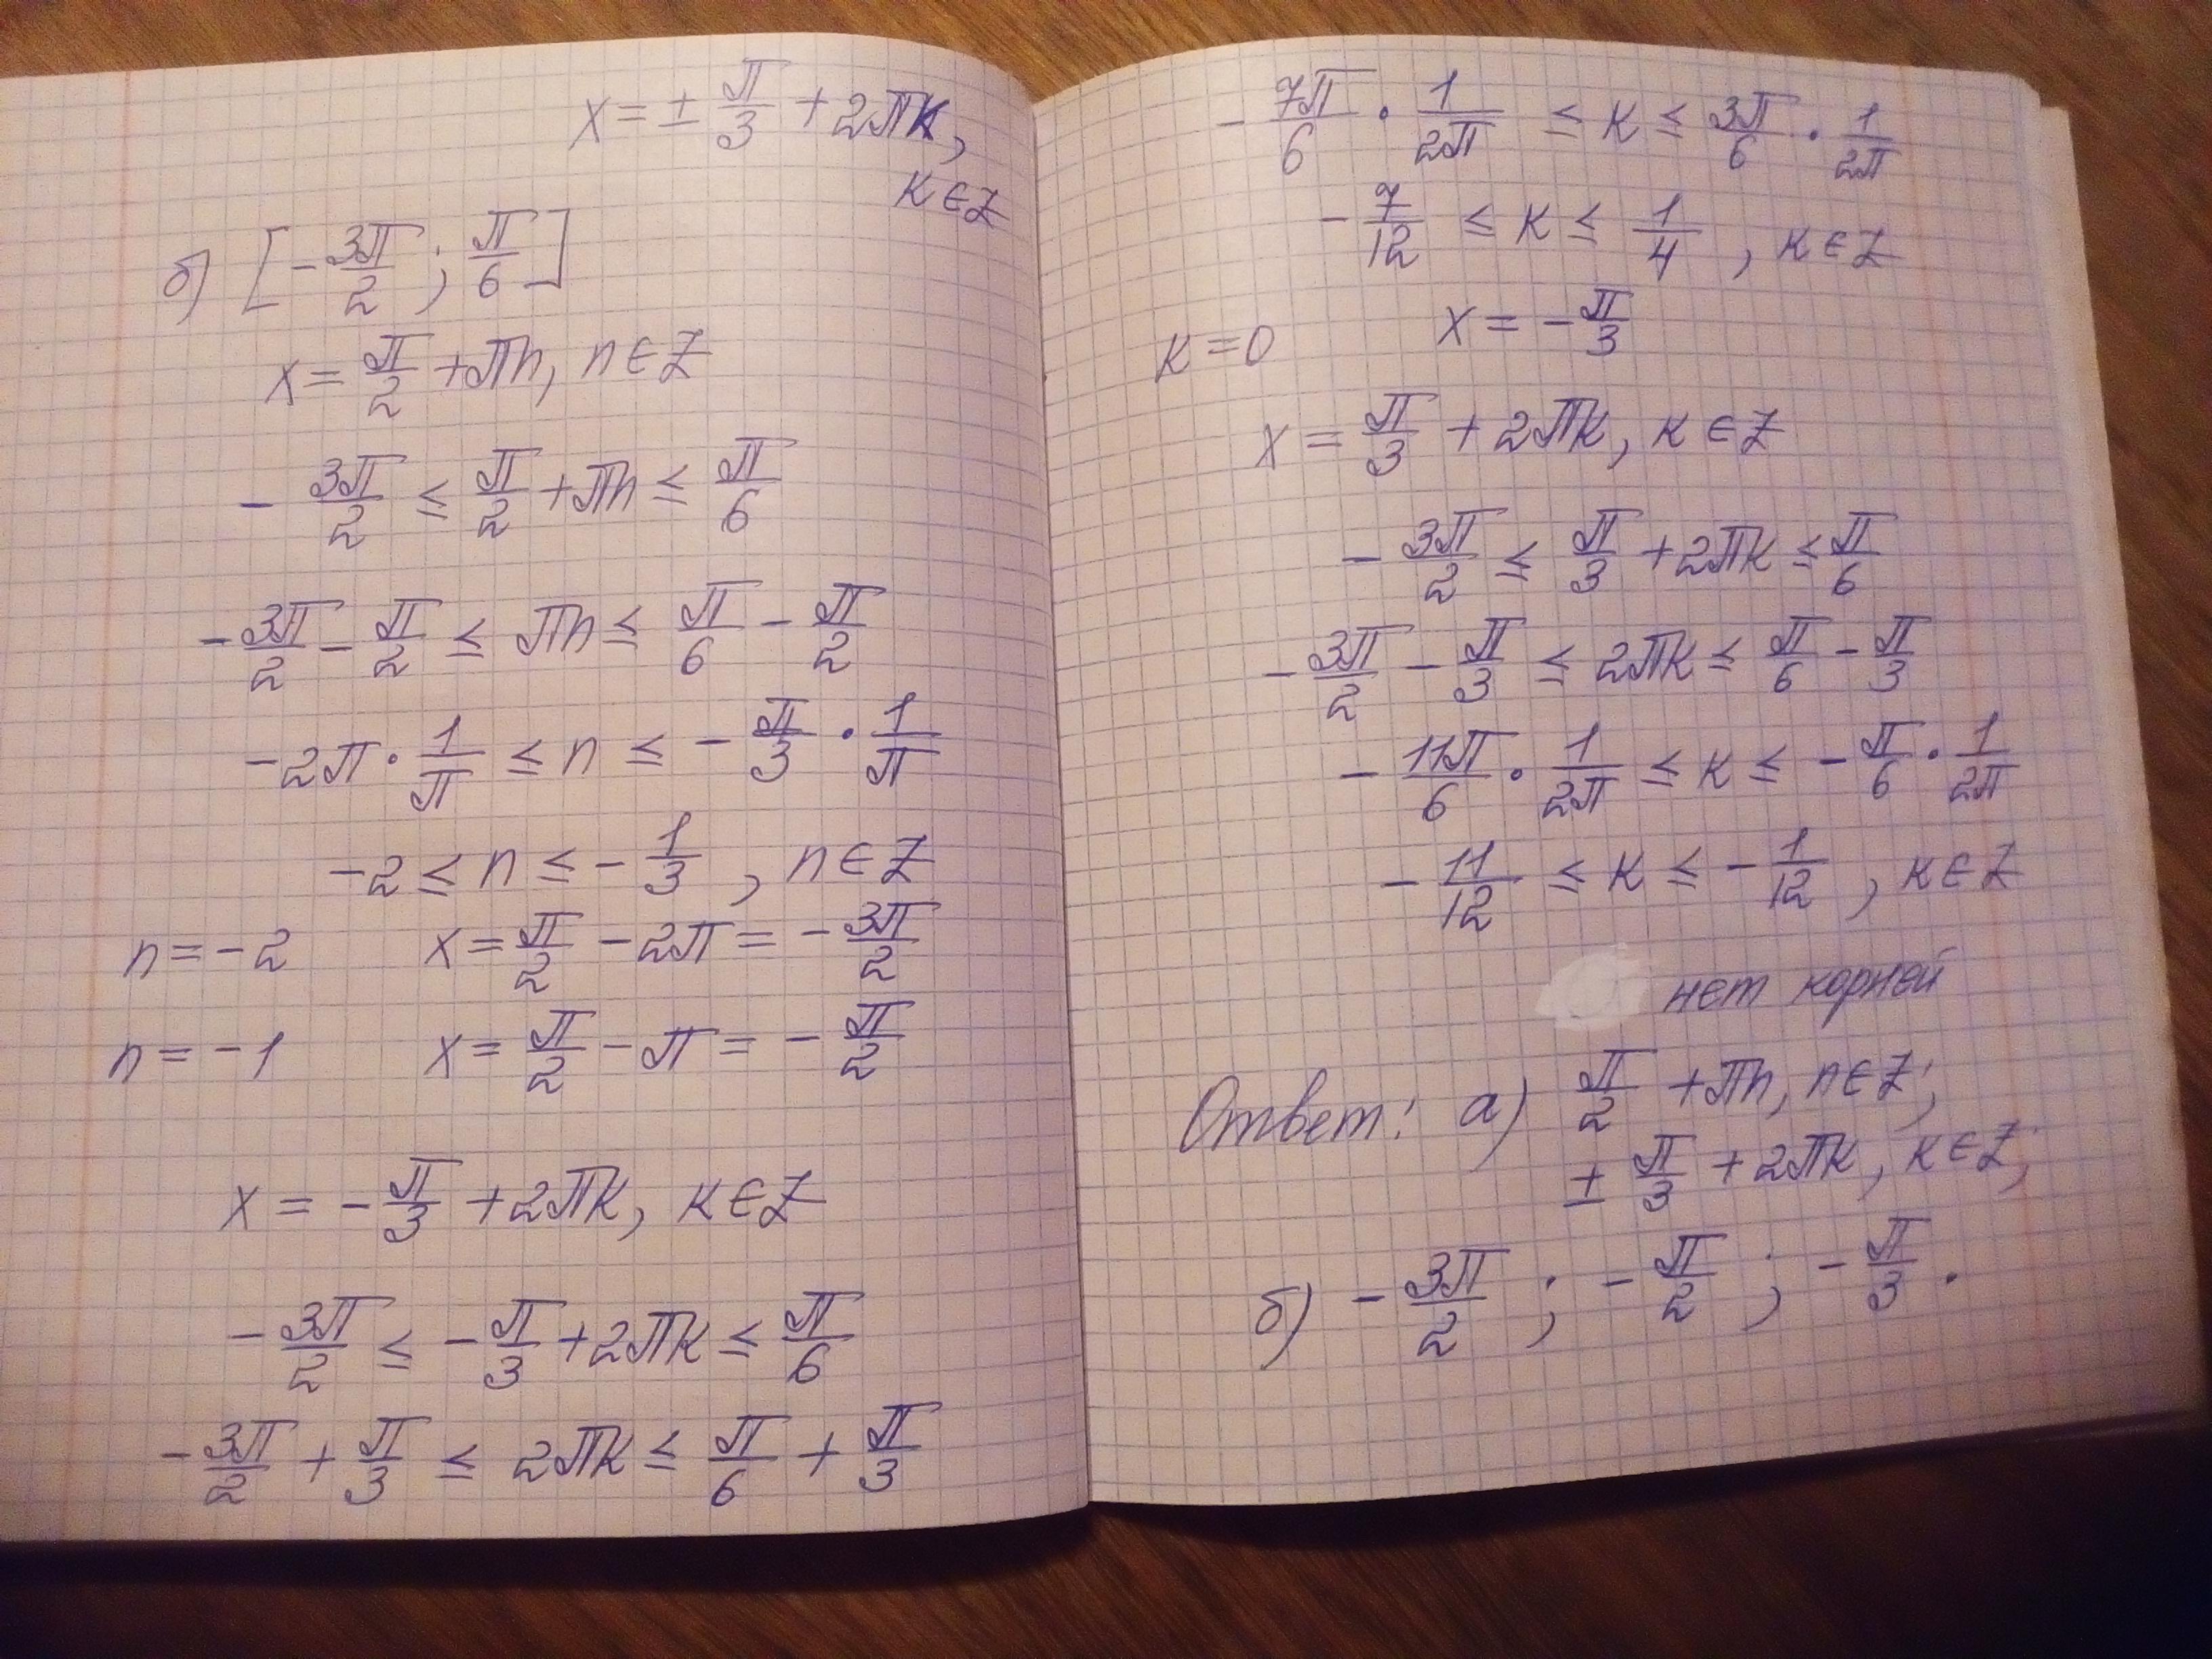 x = ± π/3 + 2πk,
k ∈ Z
б) [-3π/2; π/6]
x = π/2 + πn, n ∈ Z
- 3π/2 ≤ π/2 + πn ≤ π/6
- 3π/2 - π/2 ≤ πn ≤ π/6 - π/2
-2π · 1/π ≤ n ≤ - π/3 · 1/π
-2 ≤ n ≤ - 1/3, n ∈ Z
n = -2 x = π/2 - 2π = - 3π/2
n = -1 x = π/2 - π = - π/2
x = - π/3 + 2πk, k ∈ Z
- 3π/2 ≤ - π/3 + 2πk ≤ π/6
- 3π/2 + π/3 ≤ 2πk ≤ π/6 + π/3
- 7π/6 · 1/2π ≤ k ≤ 3π/6 · 1/2π
- 7/12 ≤ k ≤ 1/4, k ∈ Z
k = 0 x = - π/3
x = π/3 + 2πk, k ∈ Z
- 3π/2 ≤ π/3 + 2πk ≤ π/6
- 3π/2 - π/3 ≤ 2πk ≤ π/6 - π/3
- 11π/6 · 1/2π ≤ k ≤ - π/6 · 1/2π
- 11/12 ≤ k ≤ - 1/12, k ∈ Z
нет корней
Ответ: а) π/2 + πn, n ∈ Z;
± π/3 + 2πk, k ∈ Z;
б) - 3π/2; - π/2; - π/3.